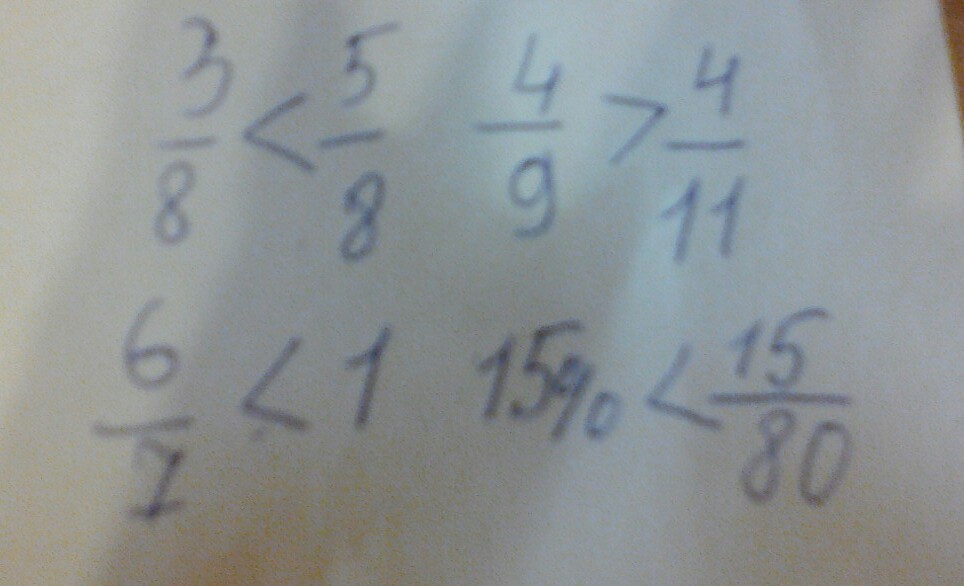 3/8 < 5/8 4/9 > 4/11
6/7 < 1 15% < 15/80